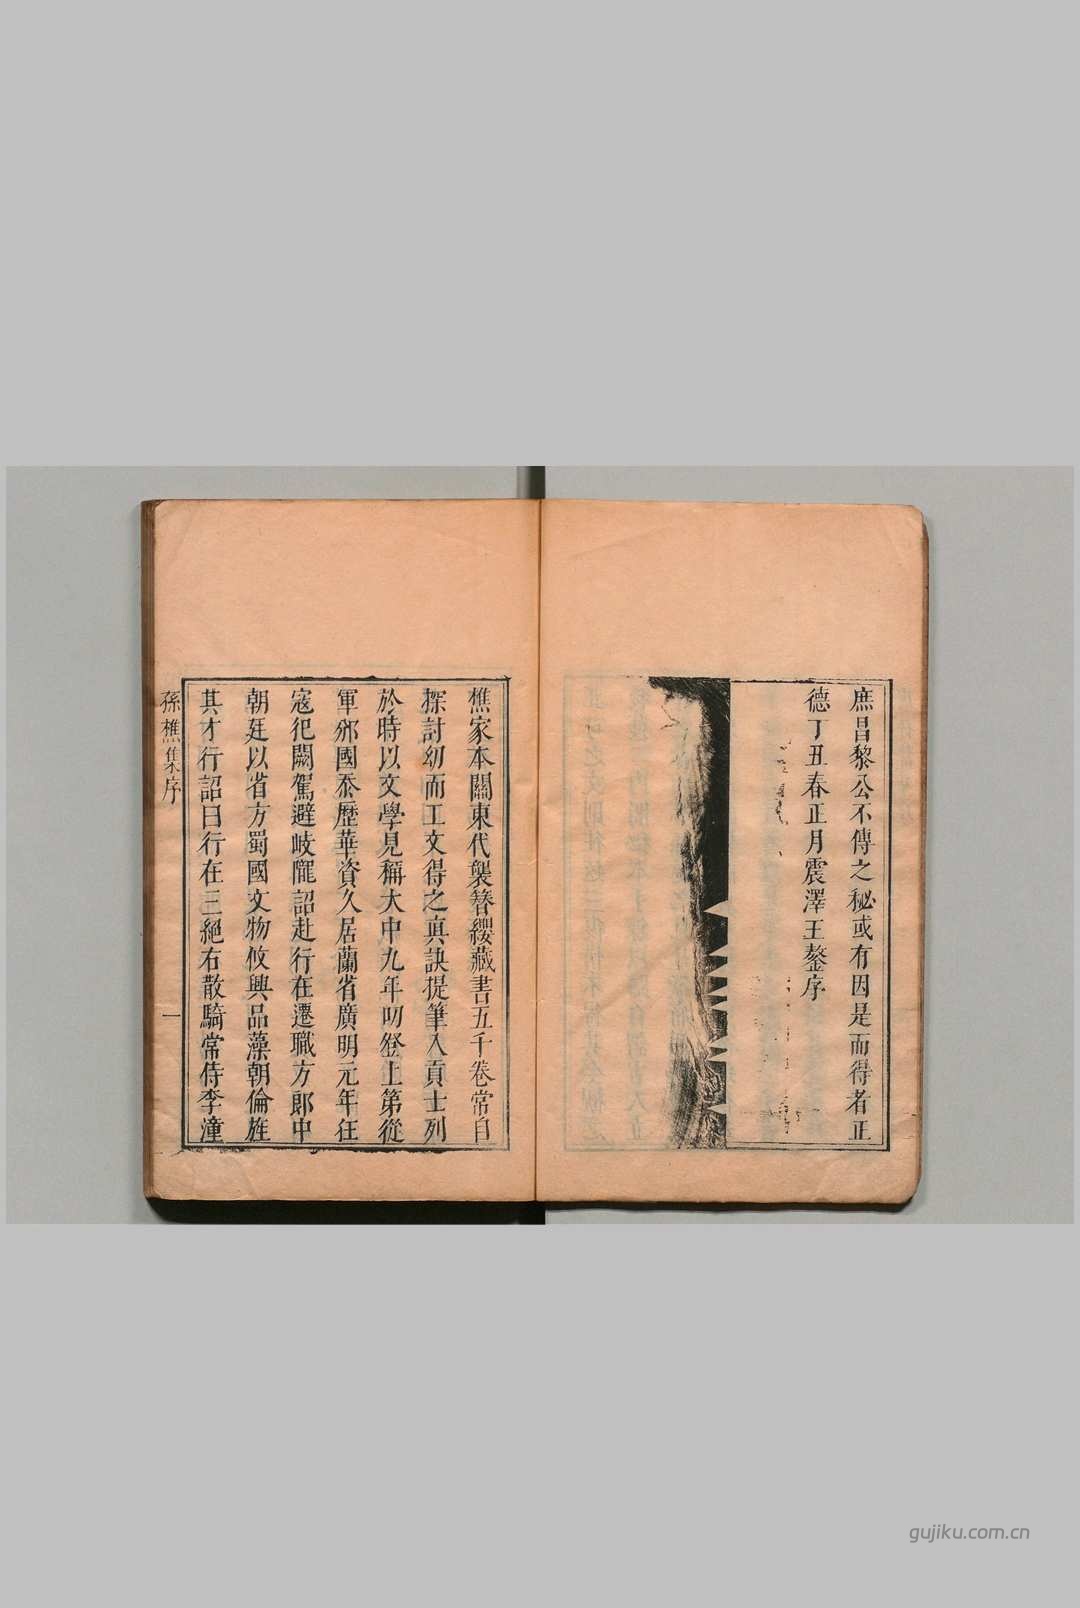 庶昌黎公不傳之秘或有因是而得者正
德丁丑春正月震澤王鏊序
樵家本關東代襲簪纓藏書五千卷常自
探討幼而工文得之真訣提筆入貢士列
於時以文學見稱大中九年叨登上第從
軍邠國忝歷華資久居蘭省廣明元年狂
寇犯闕駕避岐隴詔赴行在遷職方郎中
朝廷以省方蜀國文物攸興品藻朝倫旌
其才行詔曰行在三絕右散騎常侍李潼
孫樵集序
一
gujiku.com.cn